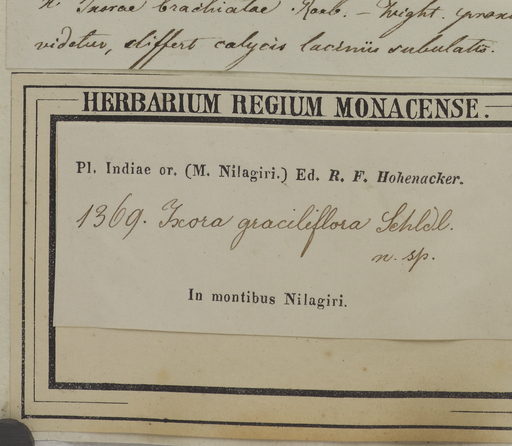 Ixorae brachiatae Roxb. – Wight.
videtur, differt calycis laciniis subulatis.
HERBARIUM REGIUM MONACENSE.
Pl. Indiae or. (M. Nilagiri.) Ed. R. F. Hohenacker.
1369. Ixora graciliflora Schldl.
n. sp.
In montibus Nilagiri.